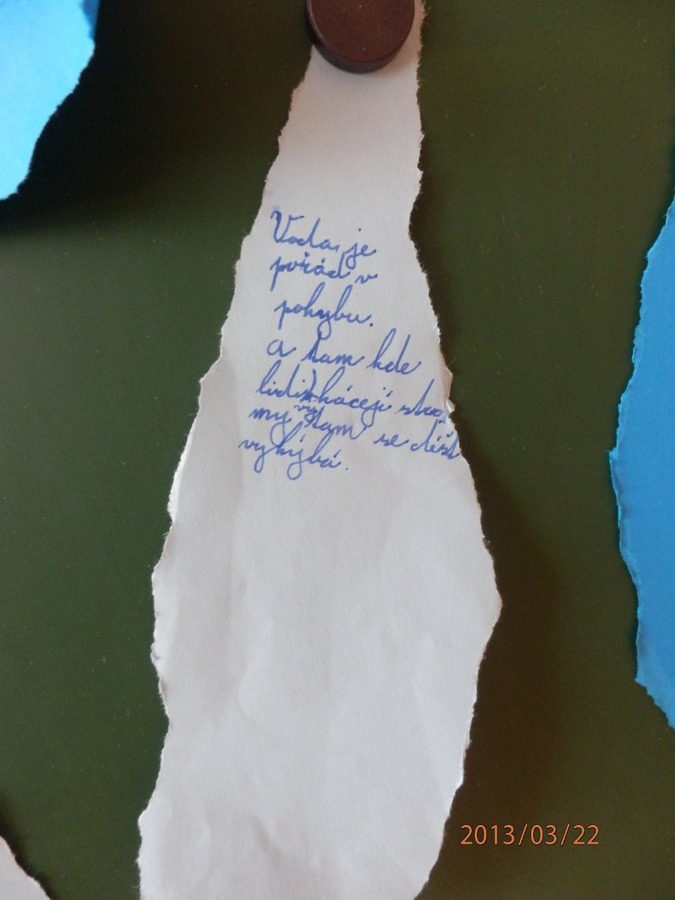 Voda, je
pořád v
pohybu.
A tam kde
lidi kácejí stro
my vy tam se déšť
vyhýbá.
2013/03/22